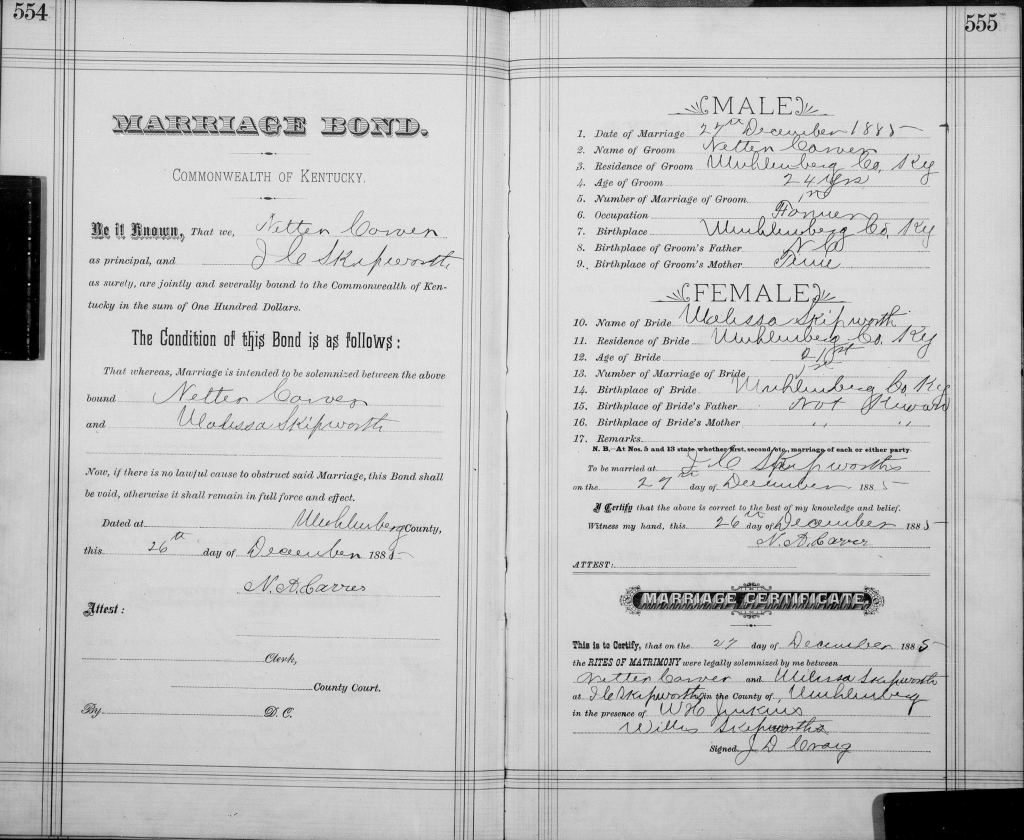 554
MARRIAGE BOND.
COMMONWEALTH OF KENTUCKY.
Be it Known, That we, Netter Carver
as principal, and J C Skipworth
as surety, are jointly and severally bound to the Commonwealth of Ken-
tucky in the sum of One Hundred Dollars.
The Condition of this Bond is as follows:
That whereas, Marriage is intended to be solemnized between the above
bound Netter Carver
and Malissa Skipworth
Now, if there is no lawful cause to obstruct said Marriage, this Bond shall
be void, otherwise it shall remain in full force and effect.
Dated at Muhlenberg County,
this 26th day of December 1885
N. A. Carver
Attest:
Clerk,
County Court.
By D. C.
555
MALE
1. Date of Marriage 27th December 1885
2. Name of Groom Netter Carver
3. Residence of Groom Muhlenberg Co, Ky
4. Age of Groom 24 yrs
5. Number of Marriage of Groom 1st
6. Occupation Farmer
7. Birthplace Muhlenberg Co, Ky
8. Birthplace of Groom's Father N. C
9. Birthplace of Groom's Mother Tenn
FEMALE
10. Name of Bride Malissa Skipworth
11. Residence of Bride Muhlenberg Co, Ky
12. Age of Bride 21
13. Number of Marriage of Bride 1st
14. Birthplace of Bride Muhlenberg Co, Ky
15. Birthplace of Bride's Father Not Known
16. Birthplace of Bride's Mother " "
17. Remarks
N. B.—At Nos. 5 and 13 state whether first, second, etc., marriage of each or either party.
To be married at J C Skipworths
on the 27th day of December 1885
I Certify that the above is correct to the best of my knowledge and belief.
Witness my hand, this 26th day of December 1885
N. A. Carver
ATTEST:
MARRIAGE CERTIFICATE.
This is to Certify, that on the 27 day of December 1885
the RITES OF MATRIMONY were legally solemnized by me between
Netter Carver and Malissa Skipworth
at J C Skipworths in the County of, Muhlenberg
in the presence of W H Jenkins
Willis Skipworths
Signed, J D Craig